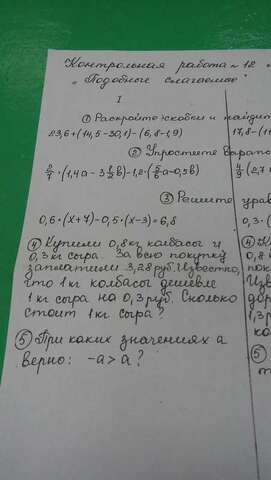 Контрольная работа №12
"Подобные слагаемые"
I
① Раскройте скобки и найдит
23,6+(14,5-30,1)-(6,8-1,9)
17,8-(11
② Упростите выраж
2/7·(1,4a-3 1/2 b)-1,2·(5/6 a-0,5b)
4/9·(2,7
③ Решите урав
0,6·(x+7)-0,5·(x-3)=6,8
0,3·(
④ Купили 0,8 кг колбасы и
0,3 кг сыра. За всю покупку
заплатили 3,28 руб. Известно,
что 1 кг колбасы дешевле
1 кг сыра на 0,3 руб. Сколько
стоит 1 кг сыра?
④ К
0,8 к
пок
Изв
дор
1,3 р
ко
⑤ При каких значениях a
верно: -a > a?
⑤
т